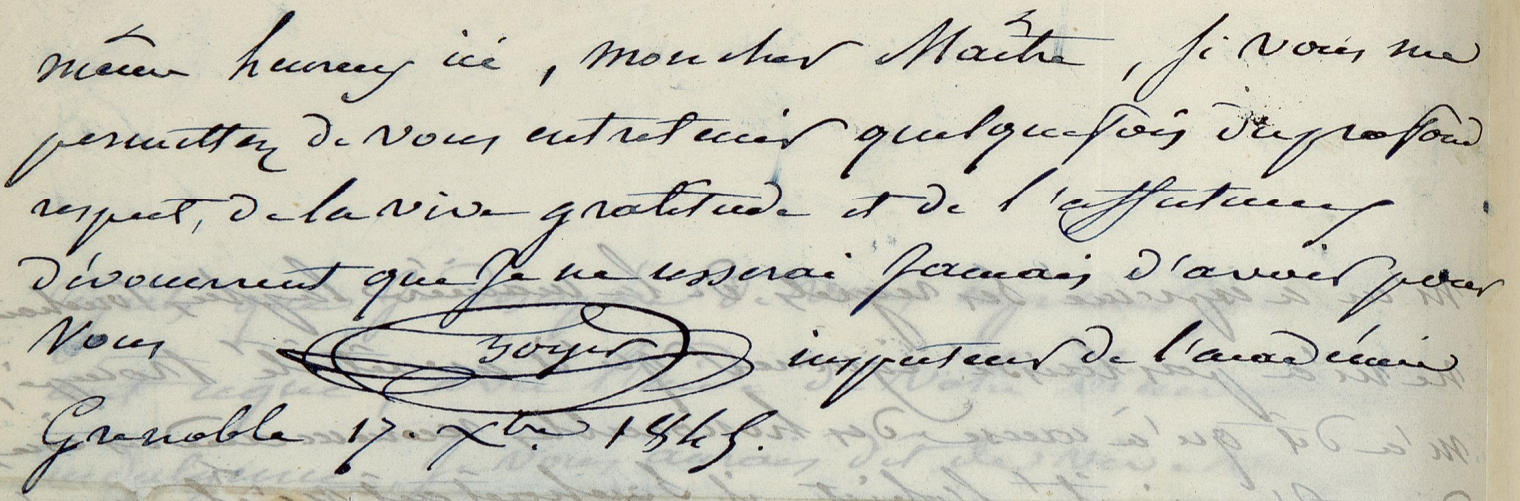 même heureux ici, mon cher Maître, si vous me
permettez de vous entretenir quelquefois du profond
respect, de la vive gratitude et de l'affectueux
dévouement que je ne cesserai jamais d'avoir pour
vous inspecteur de l'académie
Grenoble 17. Xbre 1845.